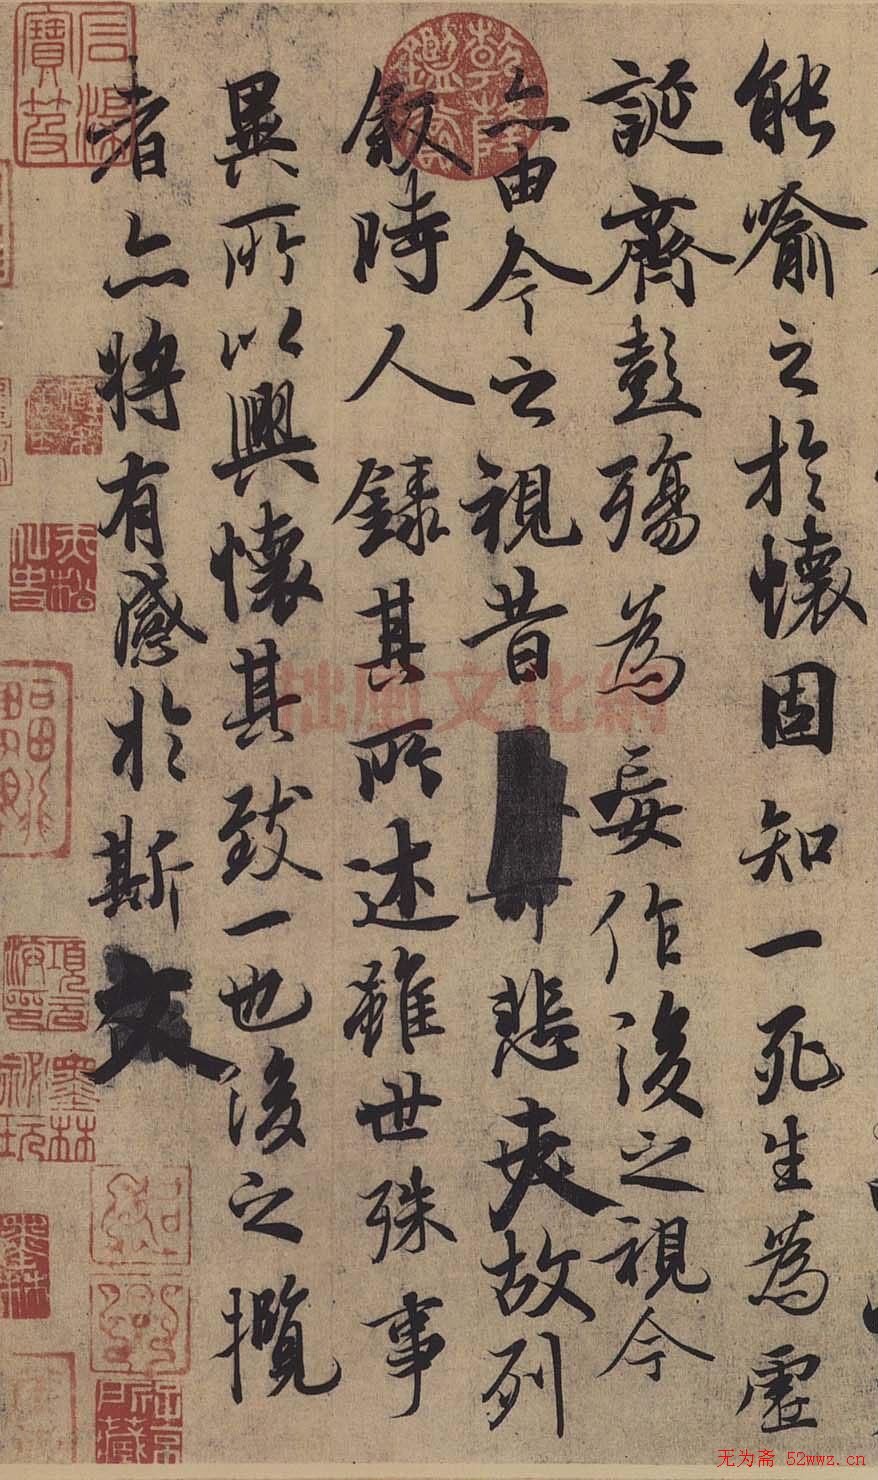 能喻之於懷固知一死生為虛
誕齊彭殤為妄作後之視今
亦由今之視昔悲夫故列
敘時人錄其所述雖世殊事
異所以興懷其致一也後之攬
者亦將有感於斯文
乾隆鑑賞
石渠寶笈
墨林祕玩
拙風文化網
无为斋 52wwz.cn